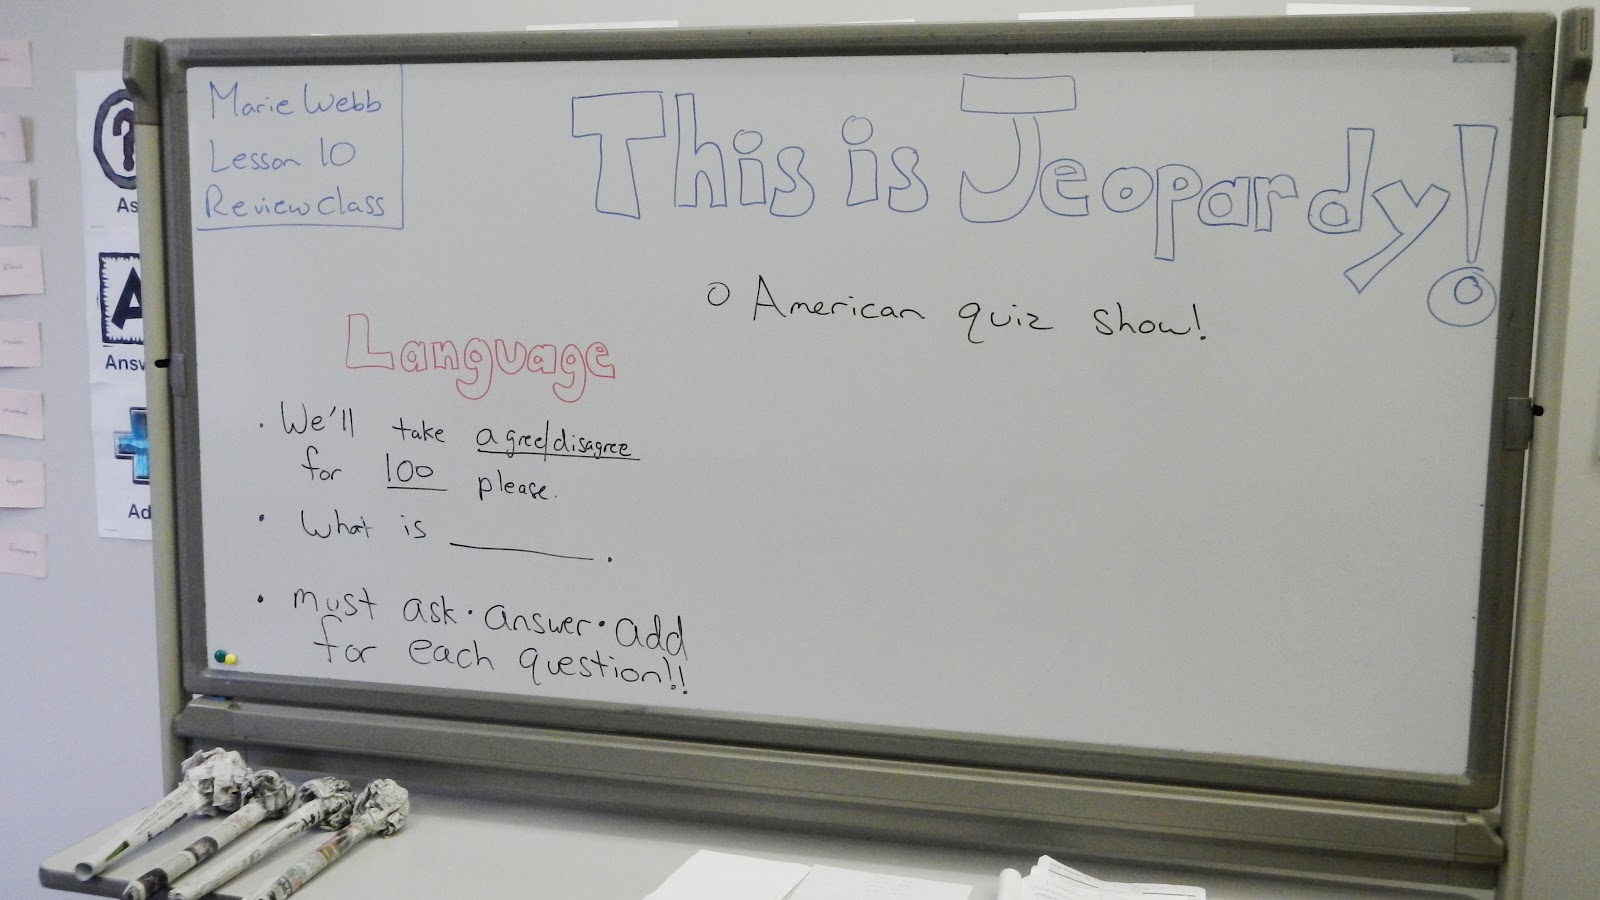 Marie Webb
Lesson 10
Review class
This is Jeopardy!
o American quiz show!
Language
• We'll take agree/disagree
for 100 please.
• What is ________.
• must ask • answer • add
for each question!!
As
Answ
Ad